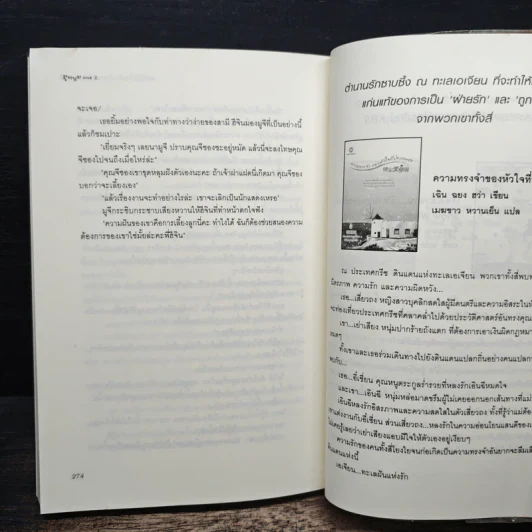 จะเจอ!
เธอยิ้มอย่างพอใจกับท่าทางว่าง่ายของสามี ฮีจินมองมูจีที่เป็นอย่างนี้
แล้วก็ชมเปาะ
"เยี่ยมจริงๆ เลยนามูจี ปราบคุณจีของซะอยู่หมัด แล้วนี่จะลงโทษคุณ
จีของไปจนถึงเมื่อไหร่ล่ะ"
"คุณจีของเขาขุดหลุมฝังตัวเองนะคะ ถ้าเจ้าฝาแฝดนี่เกิดมา คุณจีของ
บอกว่าจะเลี้ยงเอง"
"แล้วเรื่องงานจะทำอย่างไรล่ะ เขาจะเลิกเป็นนักแสดงเหรอ"
มูจีกระซิบกระซาบเสียงหวานให้ฮีจินที่ทำหน้าตกใจฟัง
"ความฝันของเขาคือการเลี้ยงลูกนี่คะ ทำไงได้ ฉันก็ต้องช่วยสนองความ
ต้องการของเขาใช่มั้ยล่ะคะพี่ฮีจิน"
274
ตำนานรักซาบซึ้ง ณ ทะเลเอเจียน ที่จะทำให้
แก่นแท้ของการเป็น 'ฝ่ายรัก' และ 'ถูก
จากพวกเขาทั้งสี่
ความทรงจำของหัวใจที่
เฉิน ฉยง ฮว่า เขียน
เมฆขาว หวานเย็น แปล
ณ ประเทศกรีซ ดินแดนแห่งทะเลเอเจียน พวกเขาทั้งสี่พบ
มิตรภาพ ความรัก และความผิดหวัง...
เธอ...เสี่ยวถง หญิงสาวบุคลิกสดใสผู้มีดนตรีและความอิสระใน
จะท่องเที่ยวประเทศกรีซที่คลาคล่ำไปด้วยประวัติศาสตร์อันทรงคุณ
เขา...เย่าเสียง หนุ่มปากร้ายถังแตก ที่ต้องการเอาเงินผิดกฎหมา
ทั้งเขาและเธอร่วมเดินทางไปยังดินแดนแปลกถิ่นอย่างคนแปลก
เธอ...อี้เซี่ยน คุณหนูตระกูลร่ำรวยที่หลงรักเอินฉีหมดใจ
และเขา...เอินฉี หนุ่มหล่อมาดขรึมผู้ไม่เคยออกนอกเส้นทางที่แม่
เอินฉีหลงรักอิสรภาพและความสดใสในตัวเสี่ยวถง ทั้งที่รู้ว่าแม่ต้อง
แต่งงานกับอี้เซี่ยน ส่วนเสี่ยวถง...หลงรักในความอ่อนโยนแสนดีของ
รู้เลยว่าเย่าเสียงแอบมีใจให้ตัวเองอยู่เงียบๆ
ความรักของคนทั้งสี่โยงใยจนก่อเกิดเป็นความทรงจำอันยากจะลืม
ดินแดนแห่งนี้
เอเจียน...ทะเลฝันแห่งรัก